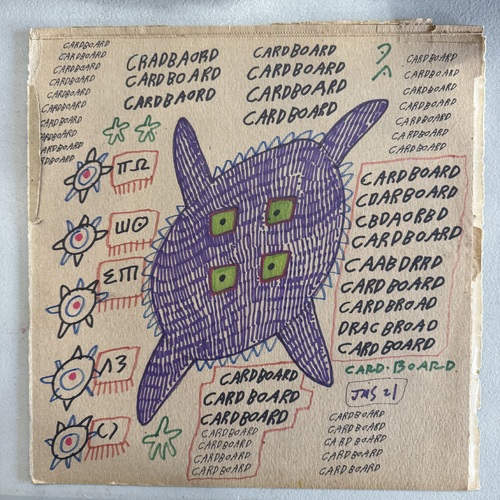 CARDBOARD
CARDBOARD
CARDBOARD
CARDBOARD
CARDBOARD
CARDBOARD
CARDBOARD
CARDBOARD
CARDBOARD
CRADBAORD
CARDBOARD
CARDBAORD
CARDBOARD
CARDBOARD
CARDBOARD
CARDBOARD
?
CARDBOARD
CARDBOARD
CARDBOARD
CARDBOARD
CARDBOARD
CARDBOARD
CARDBOARD
ΠΩ
ШΘ
ΣΠ
Λ3
CARDBOARD
CDARBOARD
CBDAORBD
CARDBOARD
CAABDRRD
CARDBOARD
CARDBROAD
DRAGBROAD
CARDBOARD
CARD·BOARD.
JMS 21
CARDBOARD
CARDBOARD
CARDBOARD
CARDBOARD
CARDBOARD
CARDBOARD
CARDBOARD
CARDBOARD
CARDBOARD
CARDBOARD
CARDBOARD
CARDBOARD